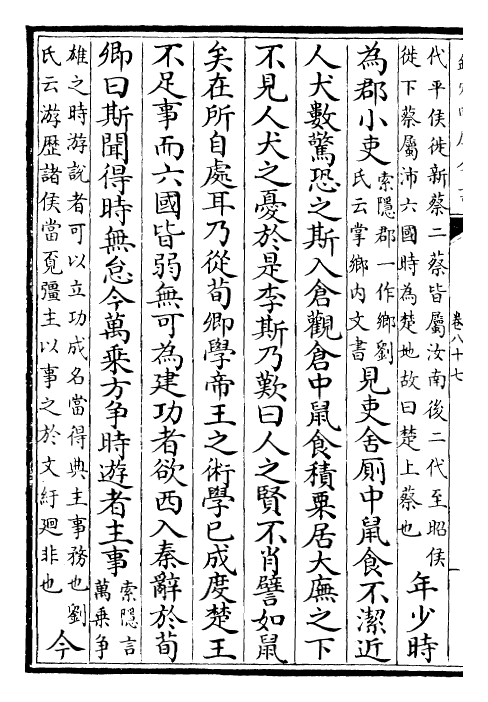 代平侯徙新蔡二蔡皆屬汝南後二代至昭侯
徙下蔡屬沛六國時為楚地故曰楚上蔡也
年少時
為郡小吏
索隱郡一作鄉劉
氏云掌鄉内文書
見吏舍厠中鼠食不潔近
人犬數驚恐之斯入倉觀倉中鼠食積粟居大廡之下
不見人犬之憂於是李斯乃歎曰人之賢不肖譬如鼠
矣在所自處耳乃從荀卿學帝王之術學已成度楚王
不足事而六國皆弱無可為建功者欲西入秦辭於荀
卿曰斯聞得時無怠今萬乘方争時遊者主事
索隱言
萬乗争
雄之時游說者可以立功成名當得典主事務也劉
氏云游歴諸侯當覓彊主以事之於文紆廻非也
今
卷八十七